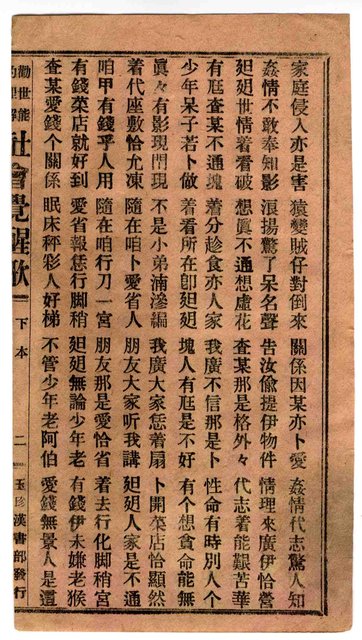 家庭侵入亦是害 猿變賊仔對倒來 關係因某亦卜愛 姦情代志驚人知
姦情不敢奉知影 浪揚驚了呆名聲 告汝偷提伊物件 情理來廣伊恰營
妲世情着看破 想眞不通想虛花 查某那是格外々 代志着能艱苦華
有尫查某不通塊 着分趁食亦人家 我廣不信那是卜 性命有時別人个
少年呆子若卜做 着看所在卽妲 塊人有尫是不好 有个想貪命能無
眞々有影現門現 不是小弟湳滲編 我廣大家恁着扇 卜開菜店恰顯然
着代座敷恰允凍 隨在咱卜愛省人 朋友大家听我講 妲人家是不通
咱甲有錢乎人用 隨在咱行刀一宮 朋友那是愛恰省 着去行化脚稍宮
有錢菜店就好到 愛省報恁行脚稍 妲無論少年老 有錢伊未嫌老猴
查某愛錢个關係 眠床秤彩人好梯 不管少年老阿伯 愛錢無景人是還
勸世能 社會覺醒歌 下本 二 玉珍漢書部發行